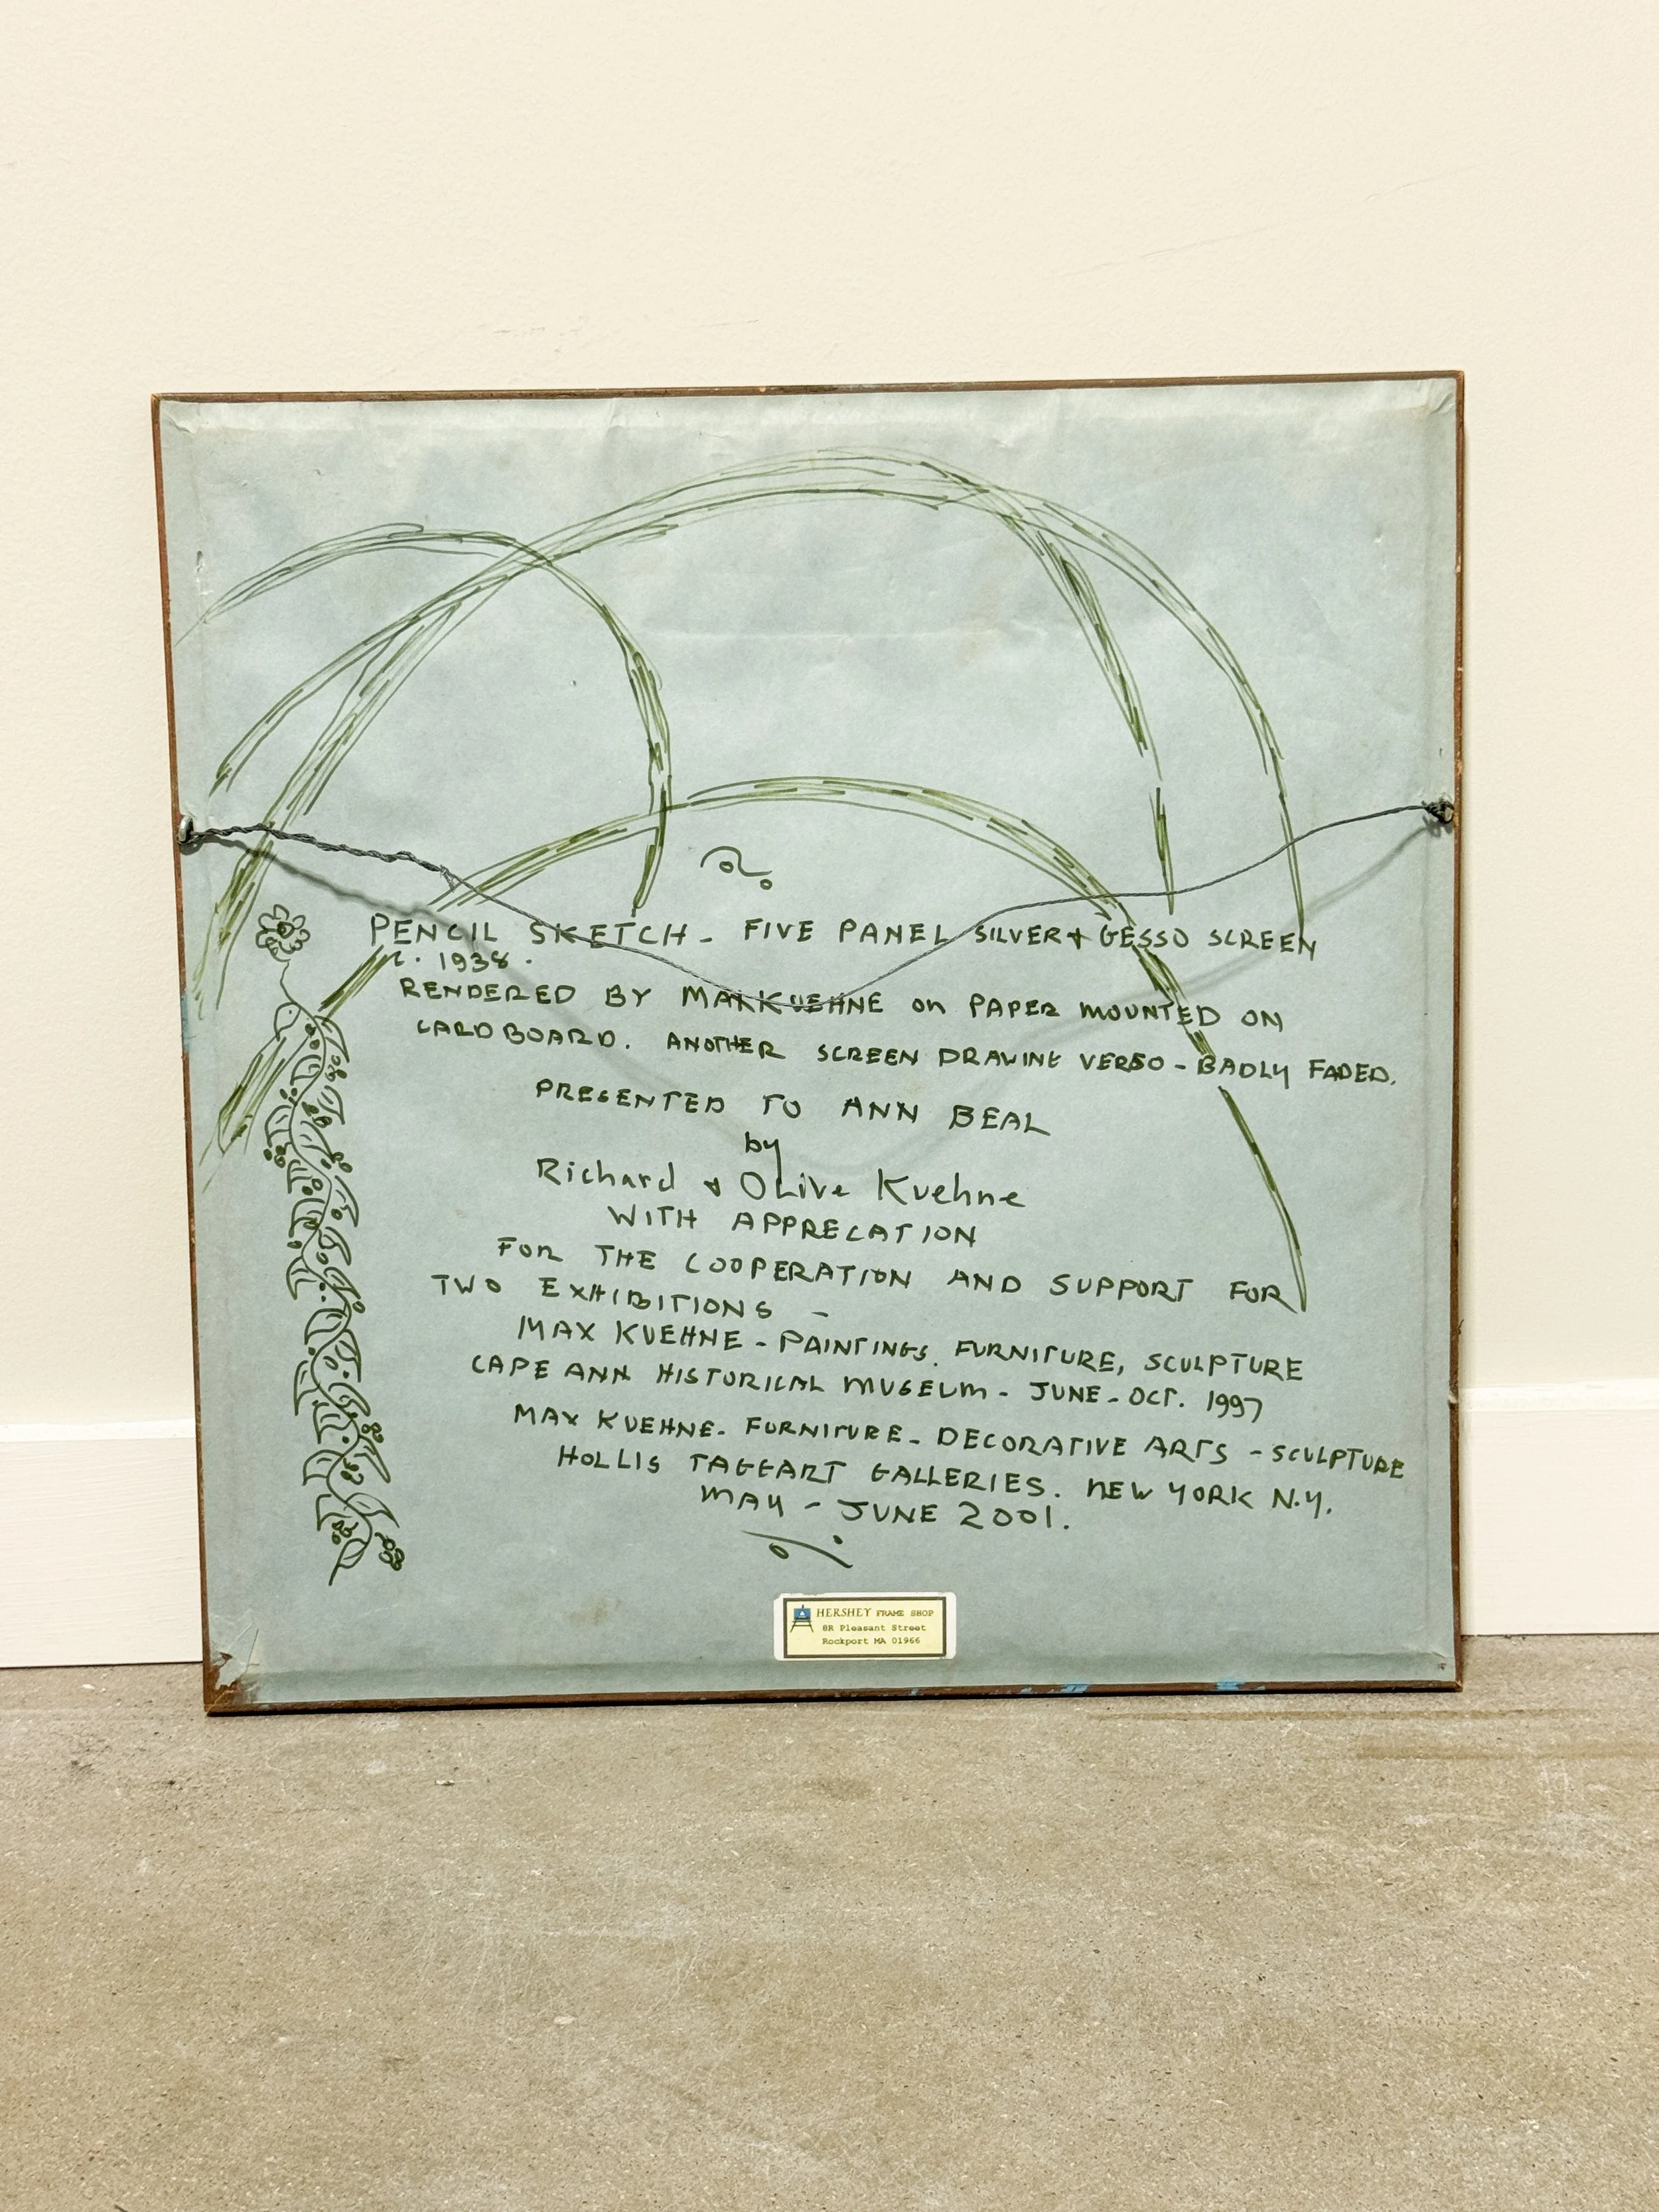 PENCIL SKETCH - FIVE PANEL SILVER + GESSO SCREEN
c. 1938.
RENDERED BY MAX KUEHNE on PAPER MOUNTED ON
CARDBOARD. ANOTHER SCREEN DRAWING VERSO - BADLY FADED.
PRESENTED TO ANN BEAL
by
Richard + Olive Kuehne
WITH APPRECATION
FOR THE COOPERATION AND SUPPORT FOR
TWO EXHIBITIONS -
MAX KUEHNE - PAINTINGS. FURNITURE, SCULPTURE
CAPE ANN HISTORICAL MUSEUM - JUNE - OCT. 1997
MAX KUEHNE. FURNITURE - DECORATIVE ARTS - SCULPTURE
HOLLIS TAGGART GALLERIES. NEW YORK N.Y.
MAY - JUNE 2001.
HERSHEY FRAME SHOP
8R Pleasant Street
Rockport MA 01966